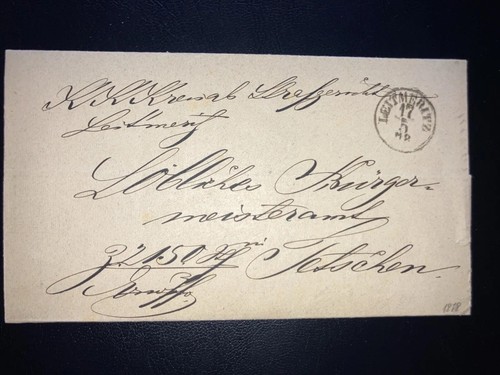 K K Kreis als Strafgericht
Leitmeritz
LEITMERITZ
17
5
Löbliches Bürger-
meisteramt
Z. 2150
Tetschen.
1878